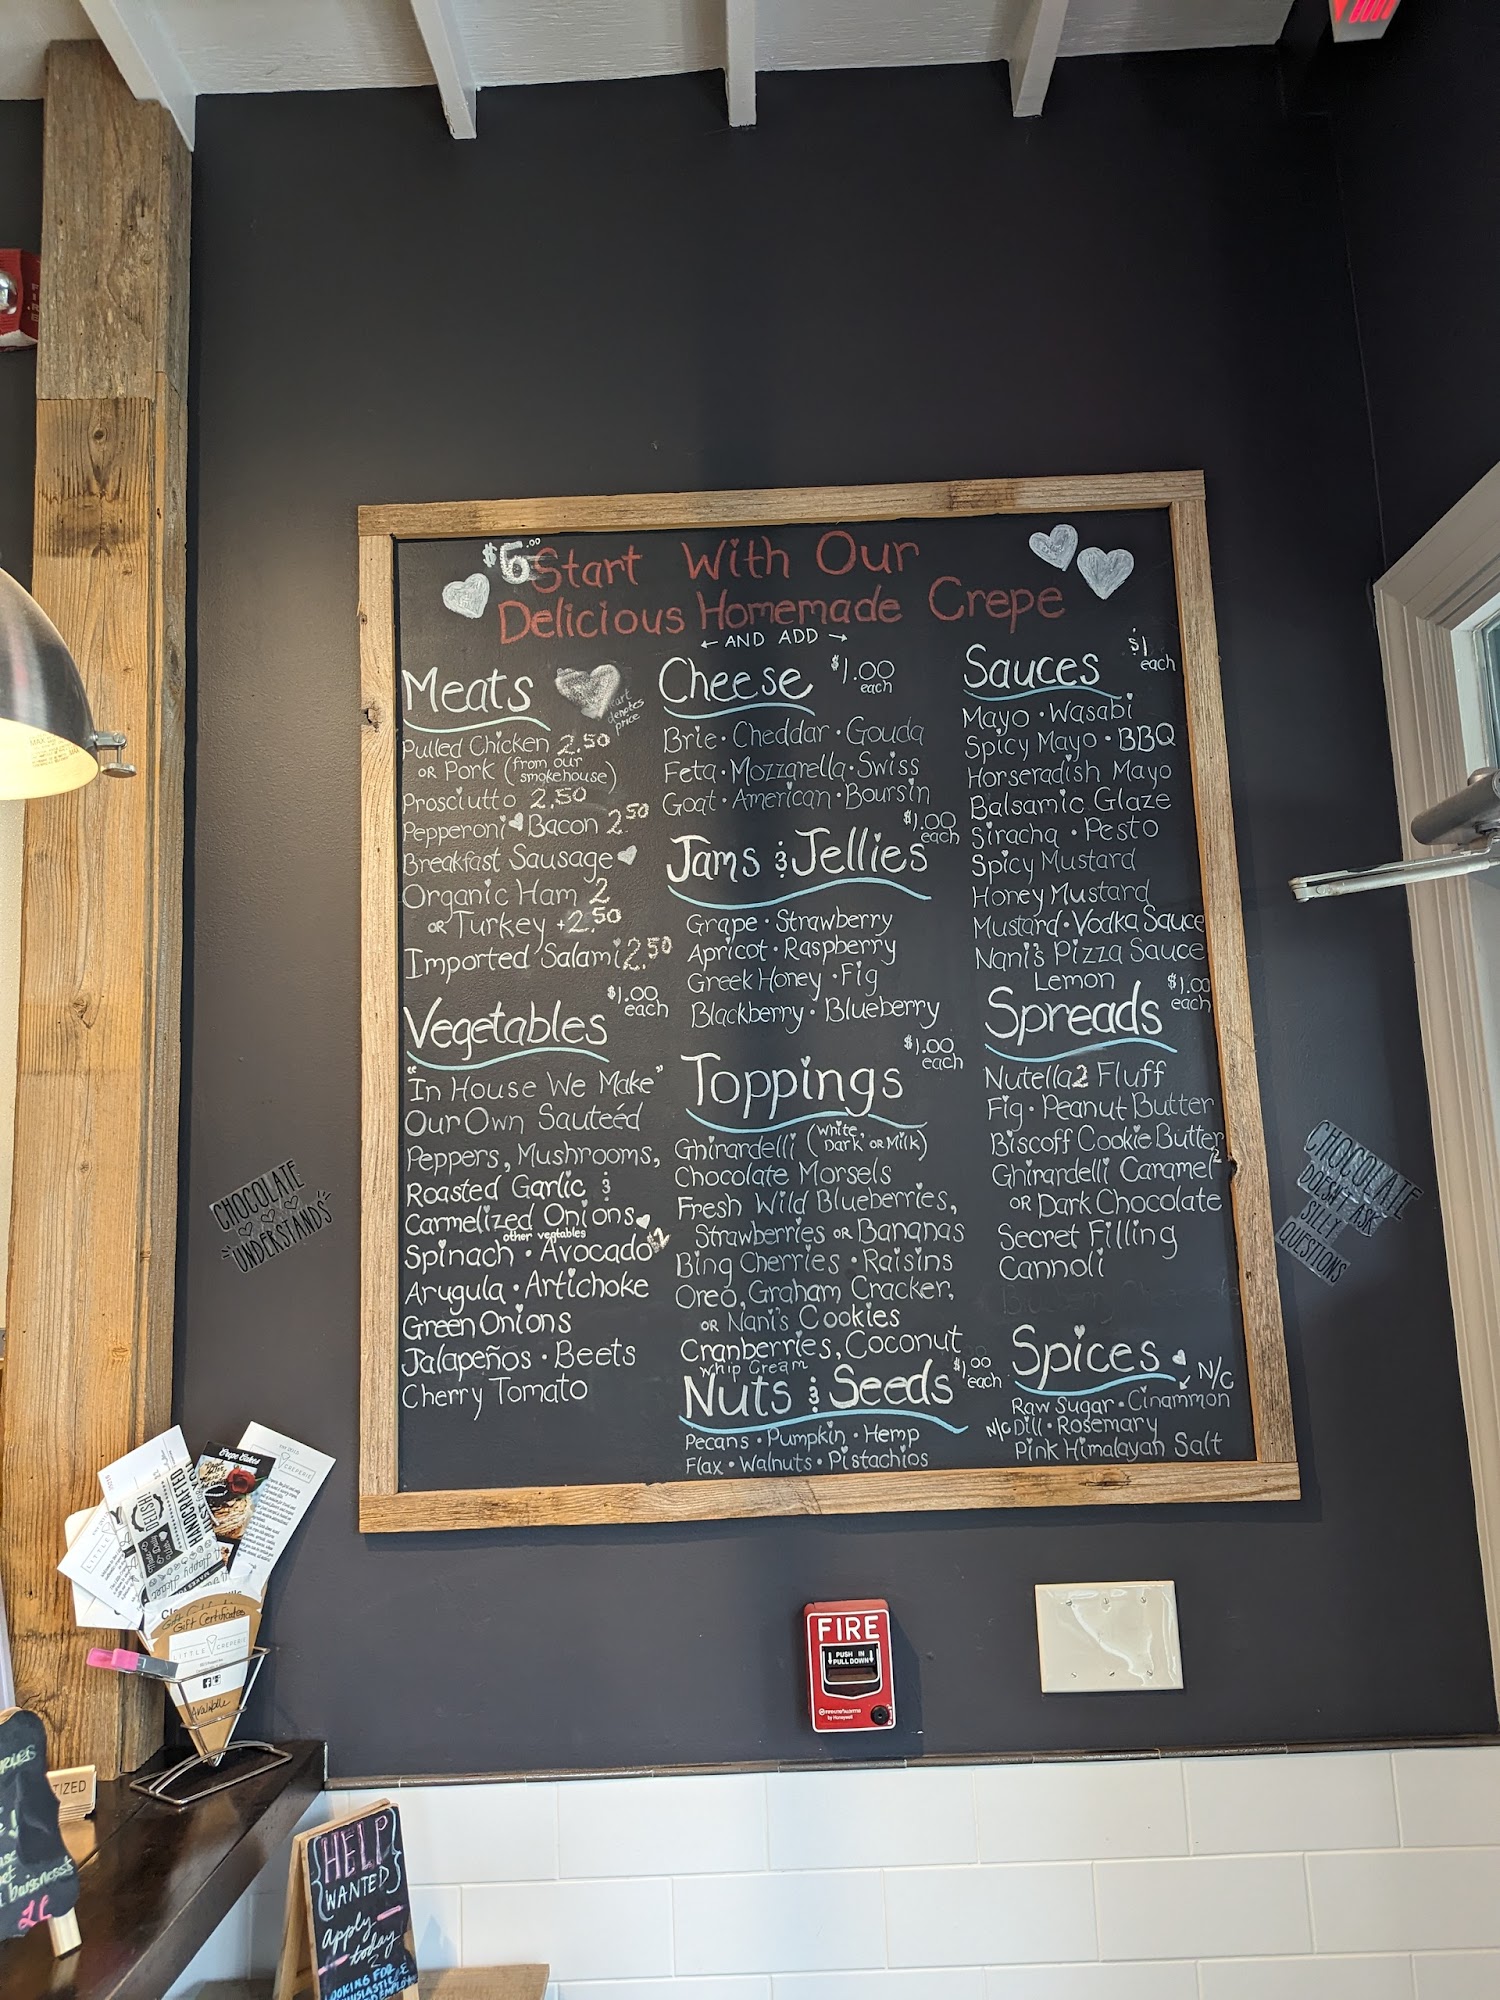 $6.00 Start With Our
Delicious Homemade Crepe
← AND ADD →
Meats
denotes
price
Pulled Chicken 2.50
OR Pork (from our
smokehouse)
Prosciutto 2.50
Pepperoni Bacon 2.50
Breakfast Sausage
Organic Ham 2
OR Turkey +2.50
Imported Salami 2.50
Vegetables $1.00
each
"In House We Make"
Our Own Sauteéd
Peppers, Mushrooms,
Roasted Garlic &
Carmelized Onions
other vegtables
Spinach • Avocado 2
Arugula • Artichoke
Green Onions
Jalapeños • Beets
Cherry Tomato
Cheese $1.00
each
Brie • Cheddar • Gouda
Feta • Mozzarella • Swiss
Goat • American • Boursin
Jams & Jellies $1.00
each
Grape • Strawberry
Apricot • Raspberry
Greek Honey • Fig
Blackberry • Blueberry
Toppings $1.00
each
Ghirardelli (White,
Dark, OR Milk)
Chocolate Morsels
Fresh Wild Blueberries,
Strawberries OR Bananas
Bing Cherries • Raisins
Oreo, Graham Cracker,
OR Nani's Cookies
Cranberries, Coconut
Whip Cream
Nuts & Seeds $1.00
each
Pecans • Pumpkin • Hemp
Flax • Walnuts • Pistachios
Sauces $1
each
Mayo • Wasabi
Spicy Mayo • BBQ
Horseradish Mayo
Balsamic Glaze
Siracha • Pesto
Spicy Mustard
Honey Mustard
Mustard • Vodka Sauce
Nani's Pizza Sauce
Lemon
Spreads $1.00
each
Nutella 2 Fluff
Fig • Peanut Butter
Biscoff Cookie Butter
Ghirardelli Caramel 2
OR Dark Chocolate
Secret Filling
Cannoli
Spices N/C
Raw Sugar • Cinammon
N/C Dill • Rosemary
Pink Himalayan Salt
CHOCOLATE
UNDERSTANDS
CHOCOLATE
DOESN'T ASK
SILLY
QUESTIONS
FIRE
PUSH IN
PULL DOWN
by Honeywell
Crepe Cakes
CREPERIE
HANDCRAFTED
DELISH!
Gift Certificates
LITTLE CREPERIE
Available
TIZED
HELP
WANTED
Apply
today
LOOKING FOR